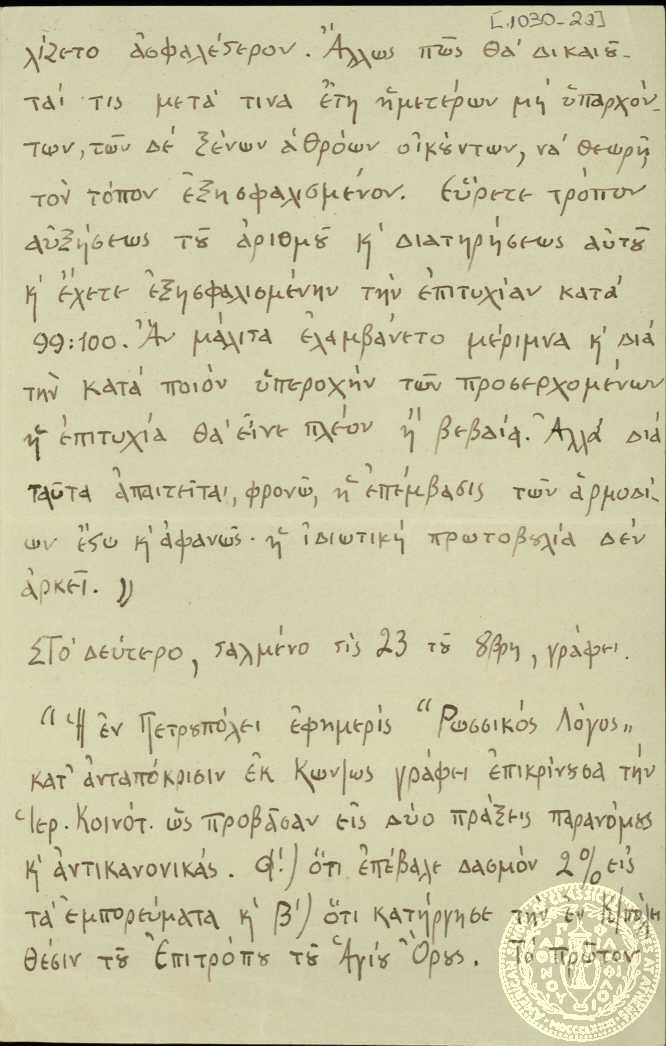 [1030-22]
λίζετο ἀσφαλέστερον. Ἄλλως πῶς θὰ δικαιοῦ-
ταί τις μετά τινα ἔτη ἡμετέρων μὴ ὑπαρχόν-
των, τῶν δὲ ξένων ἀθρόων οἰκούντων, νὰ θεωρῇ
τὸν τόπον ἐξησφαλισμένον. Εὕρετε τρόπον
αὐξήσεως τοῦ ἀριθμοῦ κ' διατηρήσεως αὐτοῦ
κ' ἔχετε ἐξησφαλισμένην τὴν ἐπιτυχίαν κατὰ
99:100. Ἂν μάλιστα ἐλαμβάνετο μέριμνα κ' διὰ
τὴν κατὰ ποιὸν ὑπεροχὴν τῶν προσερχομένων
ἡ ἐπιτυχία θὰ εἶνε πλέον ἢ βεβαία. Ἀλλὰ διὰ
ταῦτα ἀπαιτεῖται, φρονῶ, ἡ ἐπέμβασις τῶν ἁρμοδί-
ων ἔστω κ' ἀφανῶς· ἡ ἰδιωτικὴ πρωτοβουλία δὲν
ἀρκεῖ. »
Στὸ δεύτερο, σταλμένο στὶς 23 τοῦ 8βρη, γράφει.
“Ἡ ἐν Πετρουπόλει ἐφημερὶς “Ρωσσικὸς Λόγος„
κατ' ἀνταπόκρισιν ἐκ Κων/ως γράφει ἐπικρίνουσα τὴν
Ἱερ. Κοινότ. ὡς προβᾶσαν εἰς δύο πράξεις παρανόμους
κ' ἀντικανονικάς. α') ὅτι ἐπέβαλε δασμὸν 2% εἰς
τὰ ἐμπορεύματα κ' β') ὅτι κατήργησε τὴν ἐν Κ/πόλει
θέσιν τοῦ Ἐπιτρόπου τοῦ Ἁγίου Ὄρους. Τὸ πρῶτον